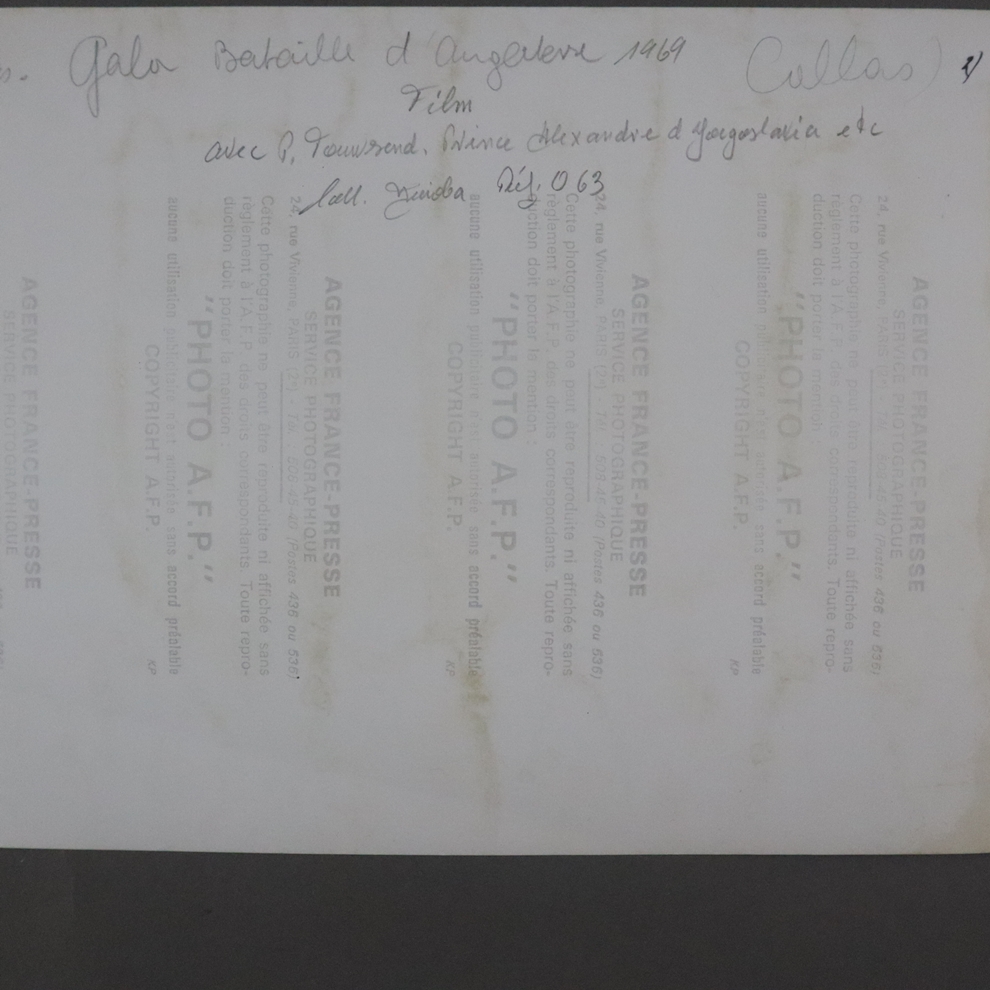 s. Gala Bataille d'Angleterre 1969 (Callas)
Film
avec P. Townsend. Prince Alexandre d Yougoslavie etc
Coll. Réf. 063
AGENCE FRANCE-PRESSE
SERVICE PHOTOGRAPHIQUE
24, rue Vivienne, PARIS (2e) - Tél. 508-45-40 (Postes 436 ou 536)
Cette photographie ne peut être reproduite ni affichée sans
règlement à l'A.F.P. des droits correspondants. Toute repro-
duction doit porter la mention :
"PHOTO A.F.P."
aucune utilisation publicitaire n'est autorisée sans accord préalable
COPYRIGHT A.F.P.
KP
AGENCE FRANCE-PRESSE
SERVICE PHOTOGRAPHIQUE
24, rue Vivienne, PARIS (2e) - Tél. 508-45-40 (Postes 436 ou 536)
Cette photographie ne peut être reproduite ni affichée sans
règlement à l'A.F.P. des droits correspondants. Toute repro-
duction doit porter la mention :
"PHOTO A.F.P."
aucune utilisation publicitaire n'est autorisée sans accord préalable
COPYRIGHT A.F.P.
KP
AGENCE FRANCE-PRESSE
SERVICE PHOTOGRAPHIQUE
24, rue Vivienne, PARIS (2e) - Tél. 508-45-40 (Postes 436 ou 536)
Cette photographie ne peut être reproduite ni affichée sans
règlement à l'A.F.P. des droits correspondants. Toute repro-
duction doit porter la mention :
"PHOTO A.F.P."
aucune utilisation publicitaire n'est autorisée sans accord préalable
COPYRIGHT A.F.P.
KP
AGENCE FRANCE-PRESSE
SERVICE PHOTOGRAPHIQUE